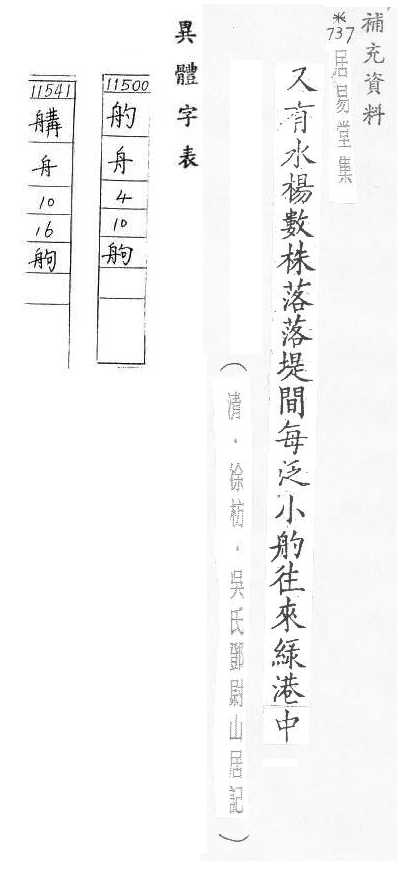 補充資料
*
737
居易堂集
又有水楊數株落落堤間每泛小舸往來緑港中
(清.徐枋.吳氏鄧尉山居記)
異體字表
11500
舸
舟
4
10
舸
11541
艜
舟
10
16
舸